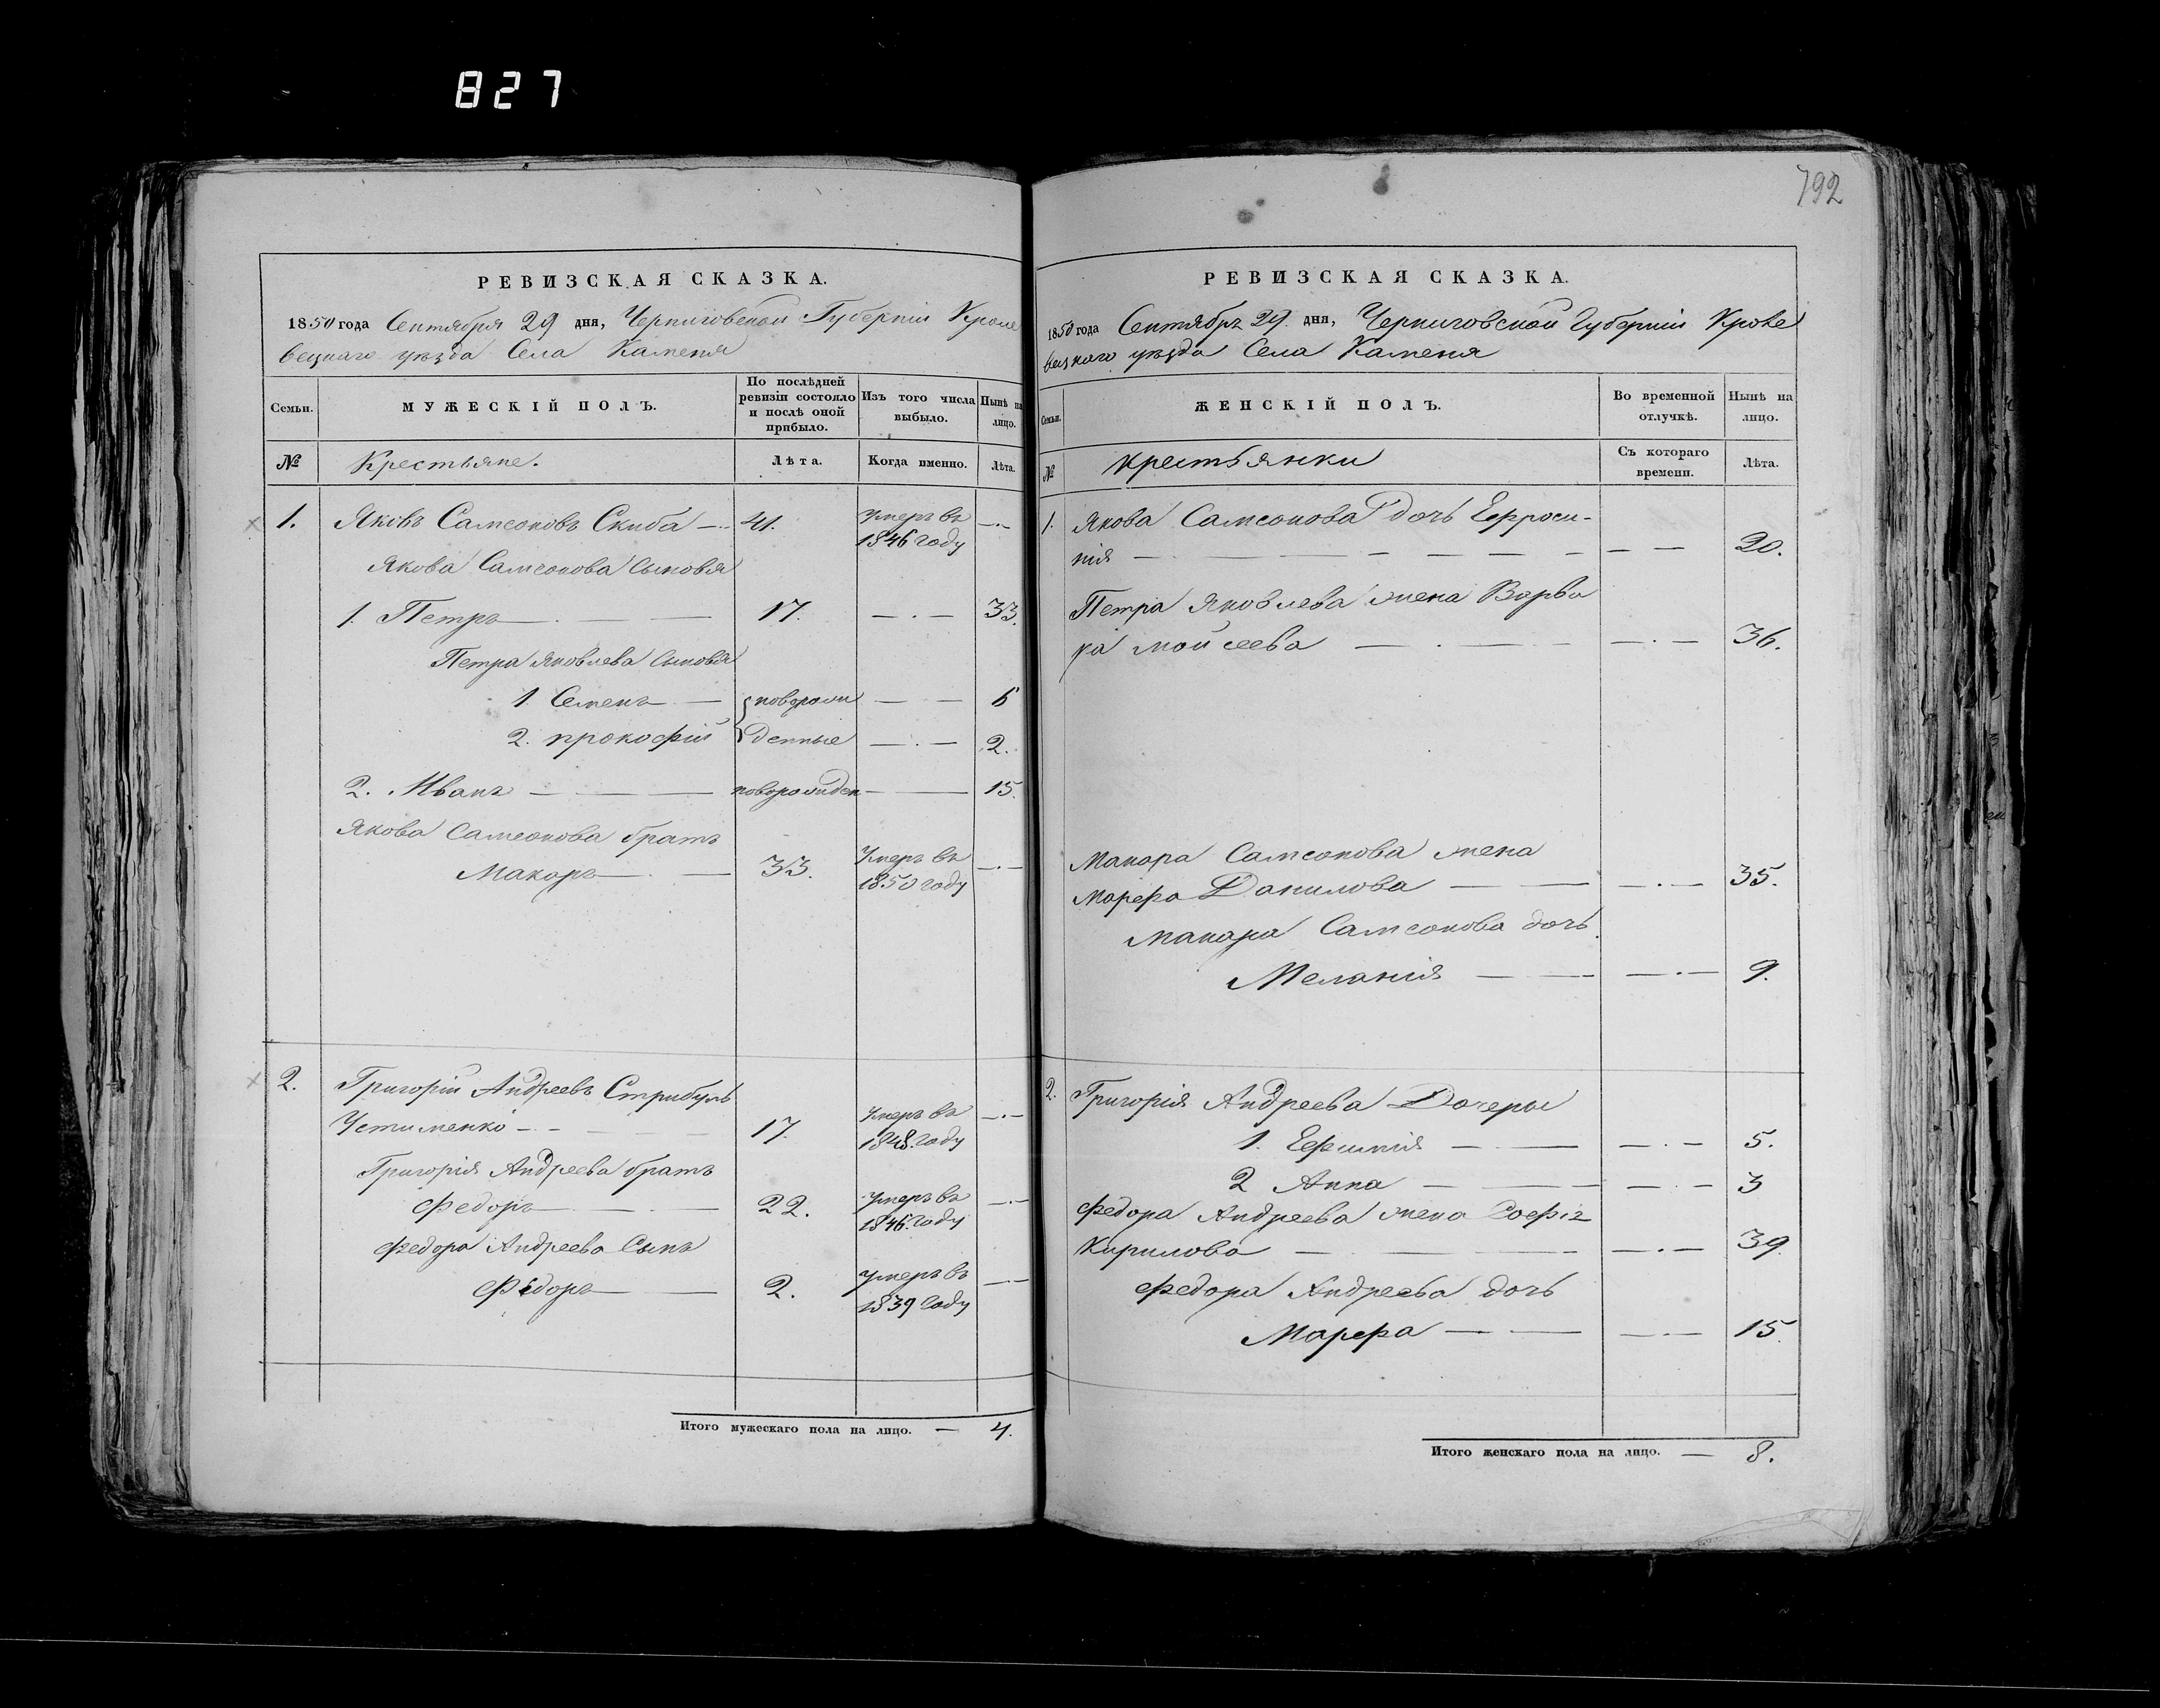 827
792
РЕВИЗСКАЯ СКАЗКА.
1850 года Сентября 29 дня, Черниговской Губерніи Кроле
вецкаго уѣзда Села Каменя
Семьи.
МУЖЕСКІЙ ПОЛЪ.
По послѣдней ревизіи состояло и послѣ оной прибыло.
Изъ того числа выбыло.
Нынѣ на лицо.
№
Крестьяне.
Лѣта.
Когда именно.
Лѣта.
1. Яковъ Самсоновъ Скиба — 41. Умеръ въ 1846 году —.—
Якова Самсонова сыновья
1. Петръ — 17. —.— 33.
Петра Яковлева сыновья
1. Семенъ — новорож — 6
2. Прокофій денные —.— 2.
2. Иванъ — новорожден — 15.
Якова Самсонова братъ
Макаръ — 33. Умеръ въ 1850 году —.—
2. Григорій Андреевъ Стрибуль
Устименко — 17. Умеръ въ 1848. году —.—
Григорія Андреева братъ
Федоръ — 22. Умеръ въ 1846. году —.—
Федора Андреева сынъ
Федоръ — 2. Умеръ въ 1839 году —.—
Итого мужескаго пола на лицо. — 4.
РЕВИЗСКАЯ СКАЗКА.
1850 года Сентябръ 29. дня, Черниговской Губерніи Кроле
вецкаго уѣзда Села Каменя
Семьи.
ЖЕНСКІЙ ПОЛЪ.
Во временной отлучкѣ.
Нынѣ на лицо.
№
крестьянки
Съ котораго времени.
Лѣта.
1. Якова Самсонова дочь Ефроси-
нія — 20.
Петра Яковлева жена Варва
ра Мойсеева — —.— 36.
Макара Самсонова жена
Марфа Данилова — —.— 35.
Макара Самсонова дочь
Меланія — —.— 9.
2. Григорія Андреева Дочеры
1. Ефимія — —.— 5.
2 Анна — —.— 3
Федора Андреева жена Софія
Кирилова — —.— 39.
Федора Андреева дочь
Марфа — —.— 15.
Итого женскаго пола на лицо. — 8.